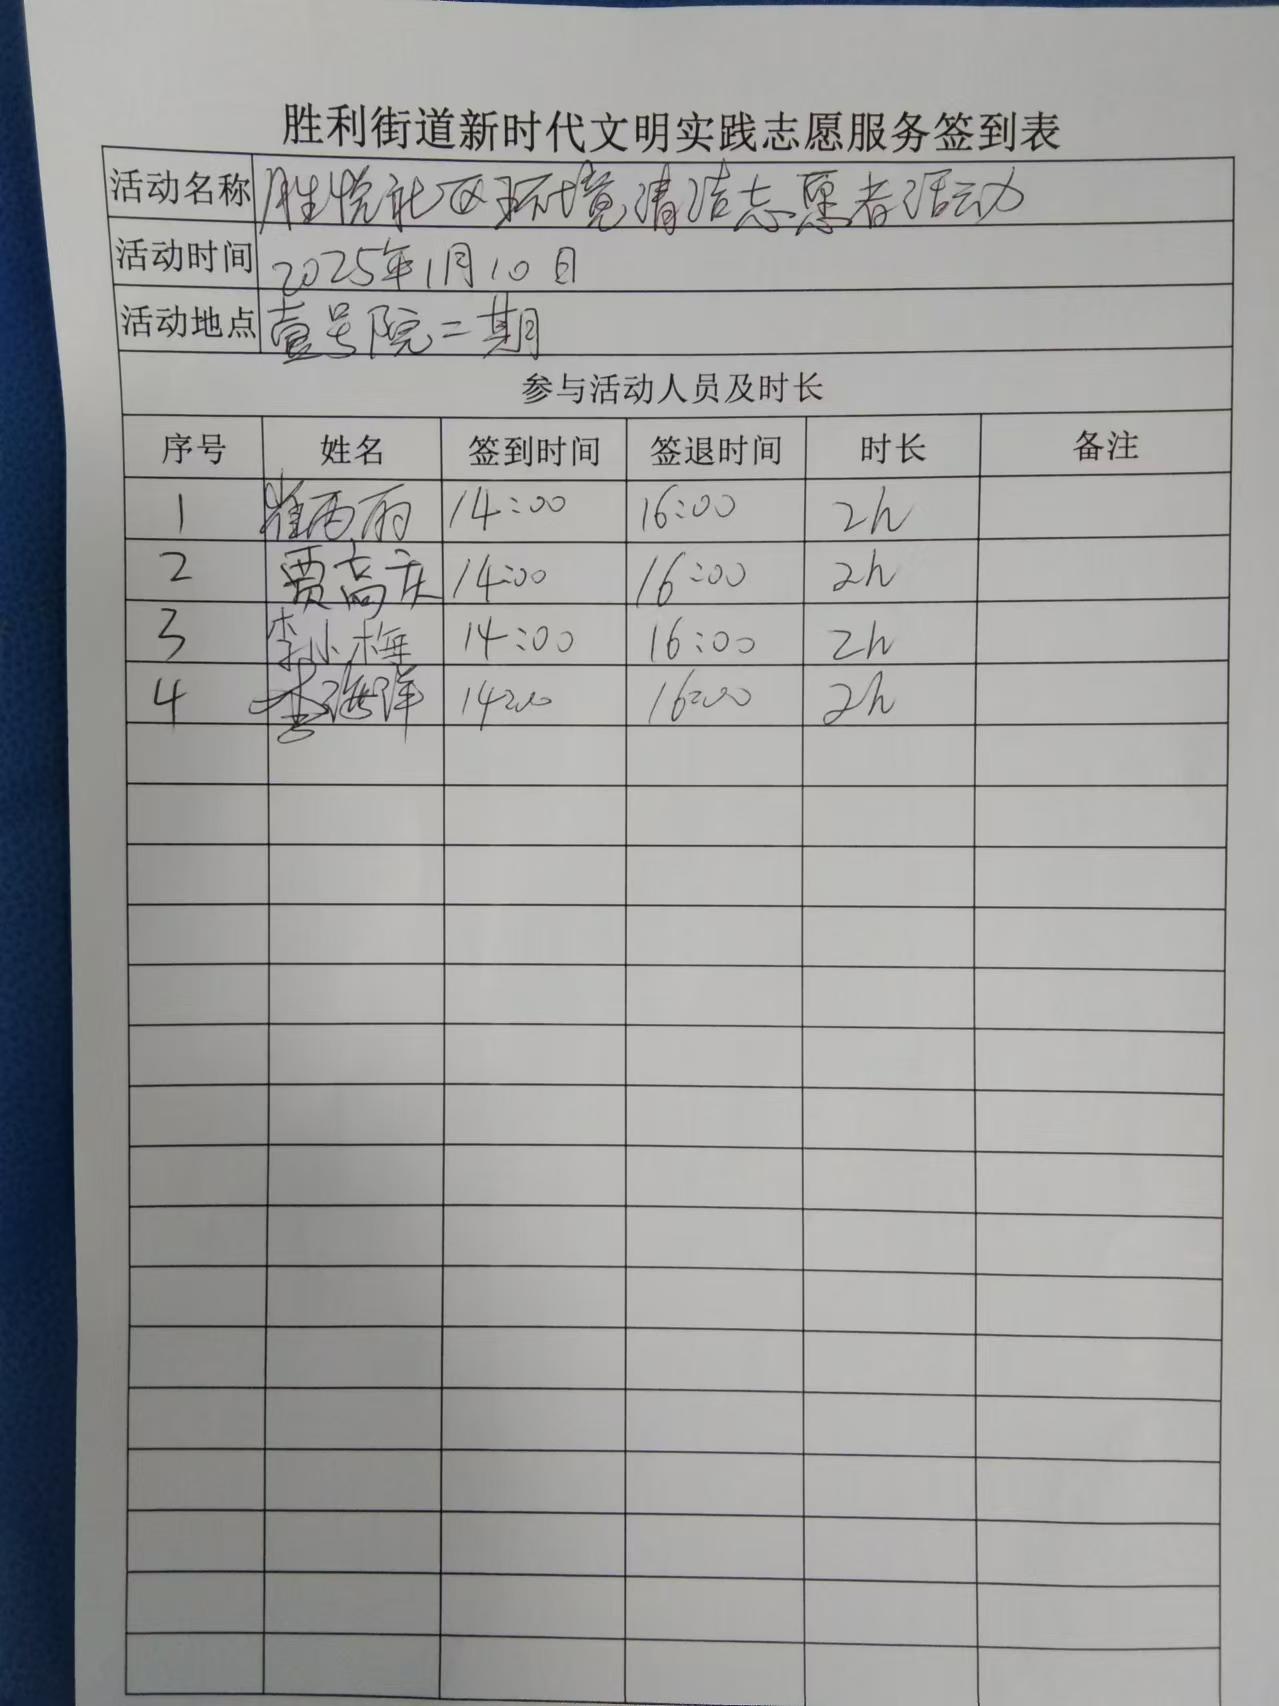 胜利街道新时代文明实践志愿服务签到表
活动名称 胜悦社区环境清洁志愿者活动
活动时间 2025年1月10日
活动地点 壹号院二期
参与活动人员及时长
序号 姓名 签到时间 签退时间 时长 备注
1 崔西丽 14:00 16:00 2h
2 贾高庆 14:00 16:00 2h
3 李小梅 14:00 16:00 2h
4 李海洋 14:00 16:00 2h